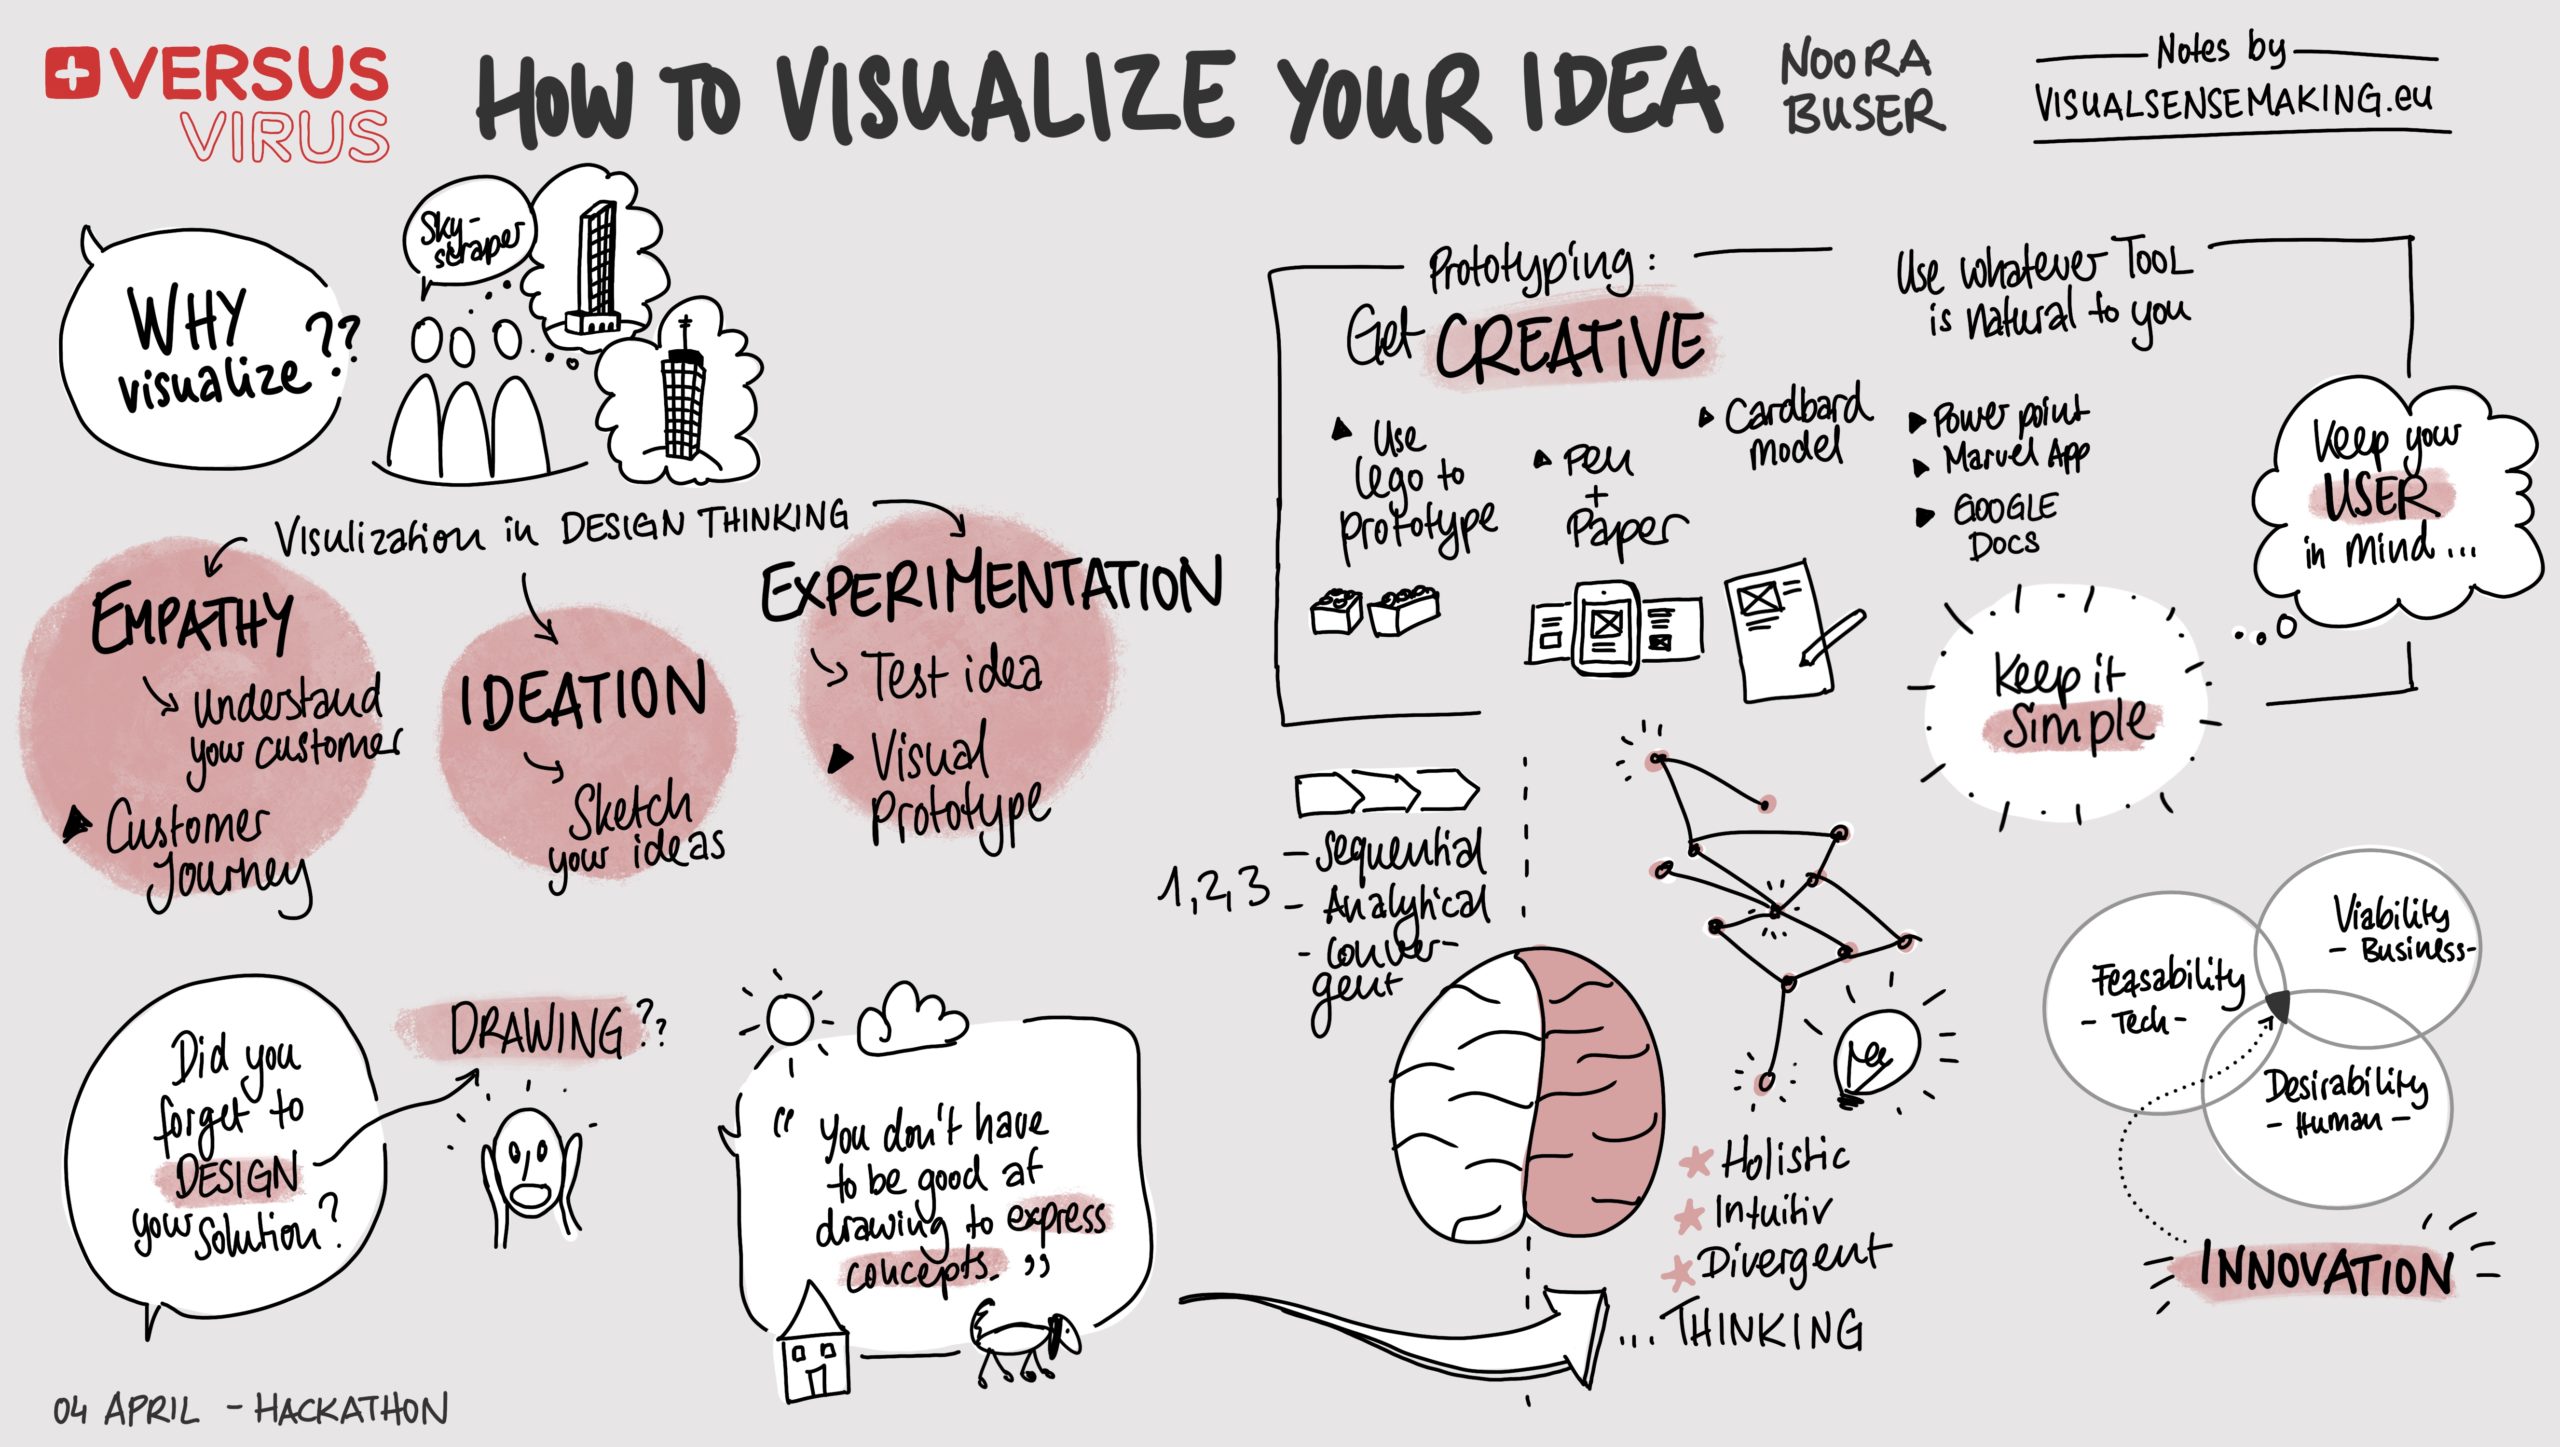 VERSUS
VIRUS
HOW TO VISUALIZE YOUR IDEA
NOORA
BUSER
Notes by
VISUALSENSEMAKING.eu
WHY
visualize??
Sky-
scraper
Visulization in DESIGN THINKING
EMPATHY
understand
your customer
Customer
Journey
IDEATION
Sketch
your ideas
EXPERIMENTATION
Test idea
Visual
Prototype
Prototyping:
Get CREATIVE
Use whatever TOOL
is natural to you
Use
Lego to
prototype
Pen
+
Paper
Cardbard
model
Power point
Marvel App
GOOGLE
DOCS
Keep your
USER
in mind...
Keep it
Simple
1,2,3
- Sequential
- Analytical
- Conver-
gent
Holistic
Intuitiv
Divergent
...THINKING
Viability
- Business -
Feasability
- Tech -
Desirability
- Human -
INNOVATION
Did you
forget to
DESIGN
your solution?
DRAWING??
"You don't have
to be good at
drawing to express
concepts."
04 APRIL - HACKATHON